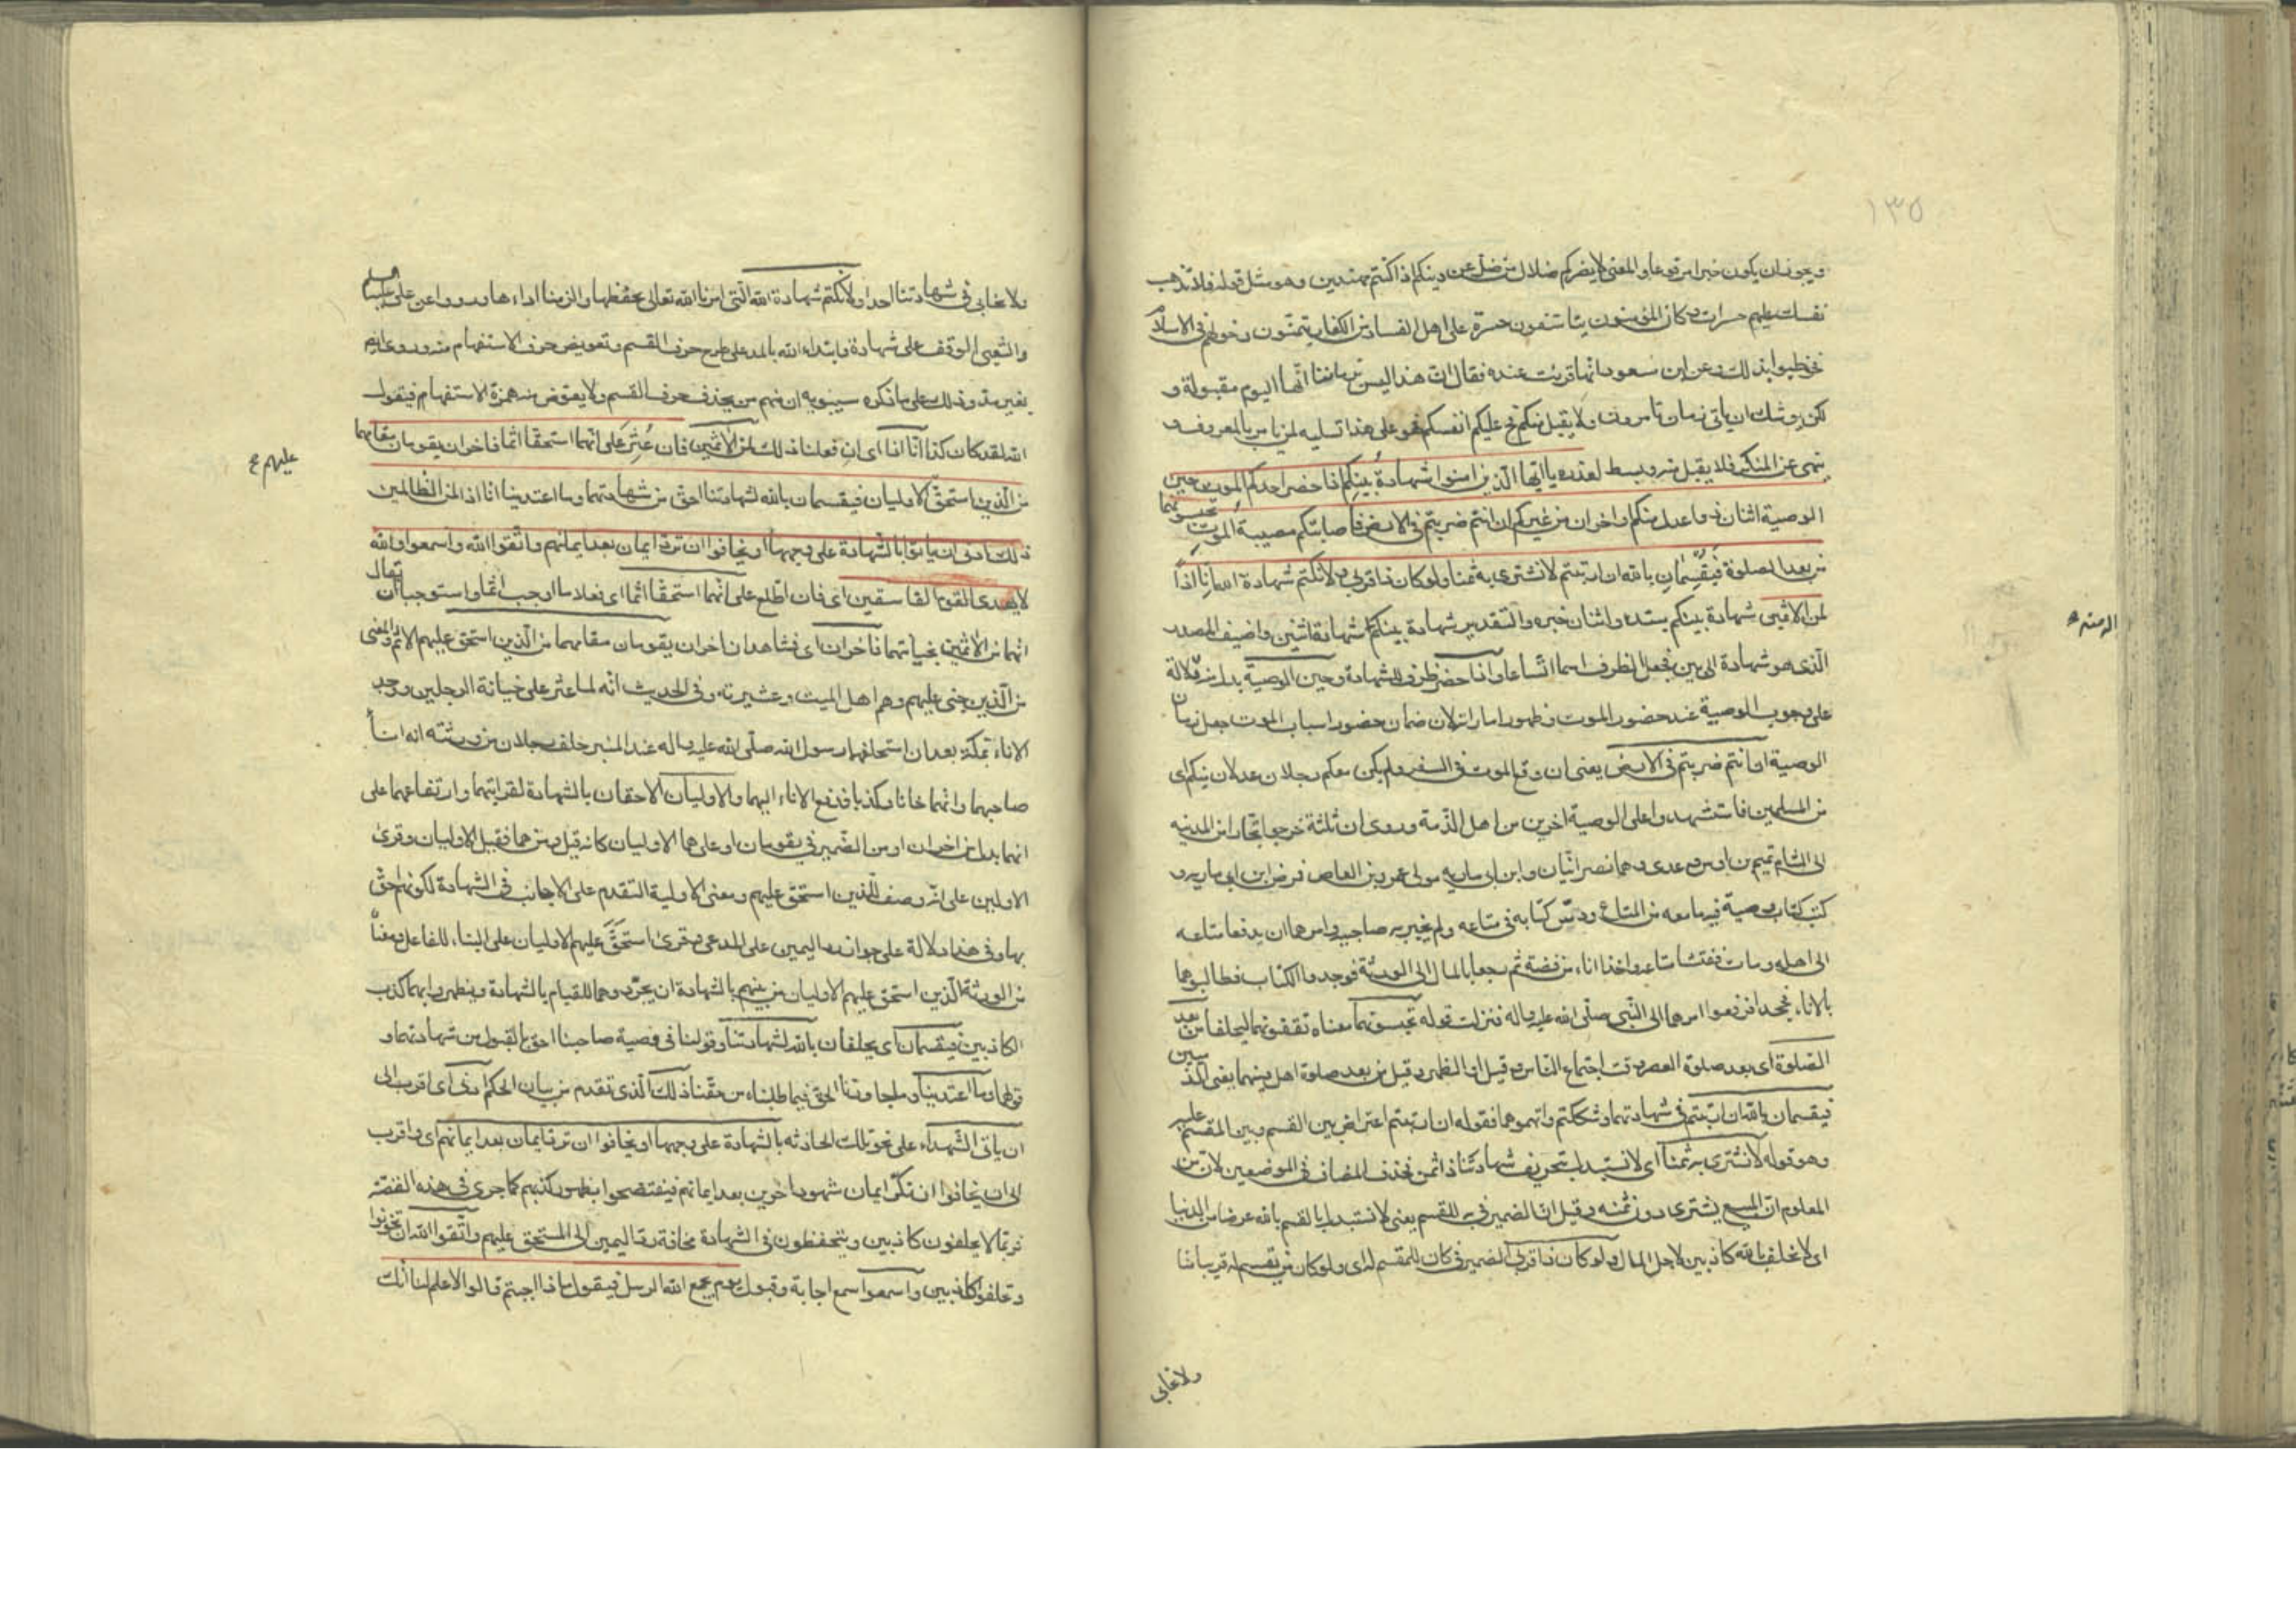 ١٣٥
ويجوز ان يكون خبرا مرفوعا والمعنى لا يضركم ضلال من ضل عن دينكم اذا كنتم مهتدين وهو مثل قوله فلا تذهب
نفسك عليهم حسرات وكان المؤمنون يتاسفون حسرة على اهل الفساد من الكفار يتمنون دخولهم فى الاسلام
فخوطبوا بذلك وعن ابن مسعود انها قريت عنده فقال ان هذا ليس بزماننا انها اليوم مقبولة و
لكن يوشك ان ياتى زمان تامرون ولا يقبل منكم فح عليكم انفسكم فهو على هذا تسليه لمن يامر بالمعروف و
ينهى عن المنكر فلا يقبل منه وبسط لعذره يا ايها الذين امنوا شهادة بينكم اذا حضر احدكم الموت حين
الوصية اثنان ذوا عدل منكم او اخران من غيركم ان انتم ضربتم فى الارض فاصابتكم مصيبة الموت تحبسونهما
من بعد الصلوة فيقسمان بالله ان ارتبتم لا نشترى به ثمنا ولو كان ذا قربى ولا نكتم شهادة الله انا اذا
لمن الاثمين شهادة بينكم مبتدء واثنان خبره والتقدير شهادة بينكم شهادة اثنين واضيف المصدر
الذى هو شهادة الى بين فجعل الظرف اسما اتساعا واذا حضر ظرف للشهادة وحين الوصية بدل منه دلالة
على وجوب الوصية عند حضور الموت وظهور اماراته لان زمان حضور اسباب الموت جعل زمان
الوصية ان انتم ضربتم فى الارض يعنى ان وقع الموت فى السفر ولم يكن معكم رجلان عدلان منكم اى
من المسلمين فاستشهدوا على الوصية اخرين من اهل الذمة وروى ان ثلثة خرجوا تجارا من المدينه
الى الشام تميم بن اوس وعدى وهما نصرانيان وابن ابى ماريه مولى عمرو بن العاص فمرض ابن ابى ماريه و
كتب كتاب وصية فيها معه من المتاع ودس كتابه فى متاعه ولم يخبر به صاحبيه وامرهما ان يدفعا متاعه
الى اهله ومات ففتشا متاعه واخذا اناء من فضة ثم رجعا بالمال الى الورثة فوجدوا الكتاب فطالبوهما
بالاناء فجحدا فرفعوا امرهما الى النبى صلى الله عليه واله فنزلت قوله تحبسونهما معناه تقفونهما ليحلفا من بعد
الصلوة اى بعد صلوة العصر وقت اجتماع الناس وقيل او الظهر وقيل من بعد صلوة اهل دينهما يعنى الذميين
فيقسمان بالله ان ارتبتم فى شهادتهما وشككتم واتهموهما فقوله ان ارتبتم اعتراض بين القسم وبين المقسم عليه
وهو قوله لا نشترى به ثمنا اى لا نستبدل بتحريف شهادتنا ذا ثمن فحذف المضاف فى الموضعين لان من
المعلوم ان المبيع يشترى دون ثمنه وقيل ان الضمير فى به للقسم يعنى لا نستبدل بالقسم بالله عرضا من الدنيا
اى لا نحلف بالله كاذبين لاجل المال ولو كان ذا قربى الضمير فى كان للمقسم له اى ولو كان من يقسم له قريبا منا
ولا نحابى
ولا نحابى فى شهادتنا احدا ولا نكتم شهادة الله التى امرنا الله تعالى بحفظها والزمنا اداءها وروواعن على عليه السلم
والشعبى الوقف على شهادة وابتداء الله بالمد على طرح حرف القسم وتعويض حرف الاستفهام منه وروى عنهم
بغير مد وذلك على ما ذكره سيبويه ان منهم من يحذف حرف القسم ولا يعوض منه همزة الاستفهام فيقول
الله لقد كان كذا انا اذا اى ان فعلنا ذلك لمن الاثمين فان عثر على انهما استحقا اثما فاخران يقومان مقامهما
من الذين استحق الاوليان فيقسمان بالله لشهادتنا احق من شهادتهما وما اعتدينا انا اذا لمن الظالمين
عليهم صح
ذلك ادنى ان ياتوا بالشهادة على وجهها او يخافوا ان ترد ايمان بعد ايمانهم واتقوا الله واسمعوا والله
لا يهدى القوم الفاسقين اى فان اطلع على انهما استحقا اثما اى فعلا ما اوجب اثما واستوجبا ان يقال
انهما من الاثمين بخيانتهما فاخران اى فشاهدان اخران يقومان مقامهما من الذين استحق عليهم الاثم والمعنى
من الذين جنى عليهم وهم اهل الميت وعشيرته وفى الحديث انه لما عثر على خيانة الرجلين ووجد
الاناء بمكة بعد ان استحلفهما رسول الله صلى الله عليه واله عند المنبر حلف رجلان من ورثته انه اناء
صاحبهما وانهما خانا وكذبا فدفع الاناء اليهما والاوليان الاحقان بالشهادة لقرابتهما وارتفاعهما على
انهما بدل من اخران او من الضمير فى يقومان او على هما الاوليان كانه قيل ومن هما فقيل الاوليان وقرئ
الاولين على انه وصف للذين استحق عليهم ومعنى الاولية التقدم على الاجانب فى الشهادة لكونهم احق
بها وفى هذا دلالة على جواز رد اليمين على المدعى وقرئ استحق عليهم الاوليان على البناء للفاعل ومعناه
من الورثة الذين استحق عليهم الاوليان من بينهم بالشهادة ان يجردوهما للقيام بالشهادة ويظهروا بهما كذب
الكاذبين فيقسمان اى يحلفان بالله لشهادتنا وقولنا فى وصية صاحبنا احق بالقبول من شهادتهما و
قولهما وما اعتدينا وما جاوزنا الحق فيما طلبناه من حقنا ذلك الذى تقدم من بيان الحكم ادنى اى اقرب الى
ان ياتى الشهداء على نحو تلك الحادثه بالشهادة على وجهها او يخافوا ان ترد ايمان بعد ايمانهم اى واقرب
الى ان يخافوا ان تكر ايمان شهود اخرين بعد ايمانهم فيفتضحوا بظهور كذبهم كما جرى فى هذه القصة
فربما لا يحلفون كاذبين ويتحفظون فى الشهادة مخافة رد اليمين الى المستحق عليهم واتقوا الله ان تخونوا
وتحلفوا كاذبين واسمعوا سمع اجابة وقبول يوم يجمع الله الرسل فيقول ماذا اجبتم قالوا لا علم لنا انك